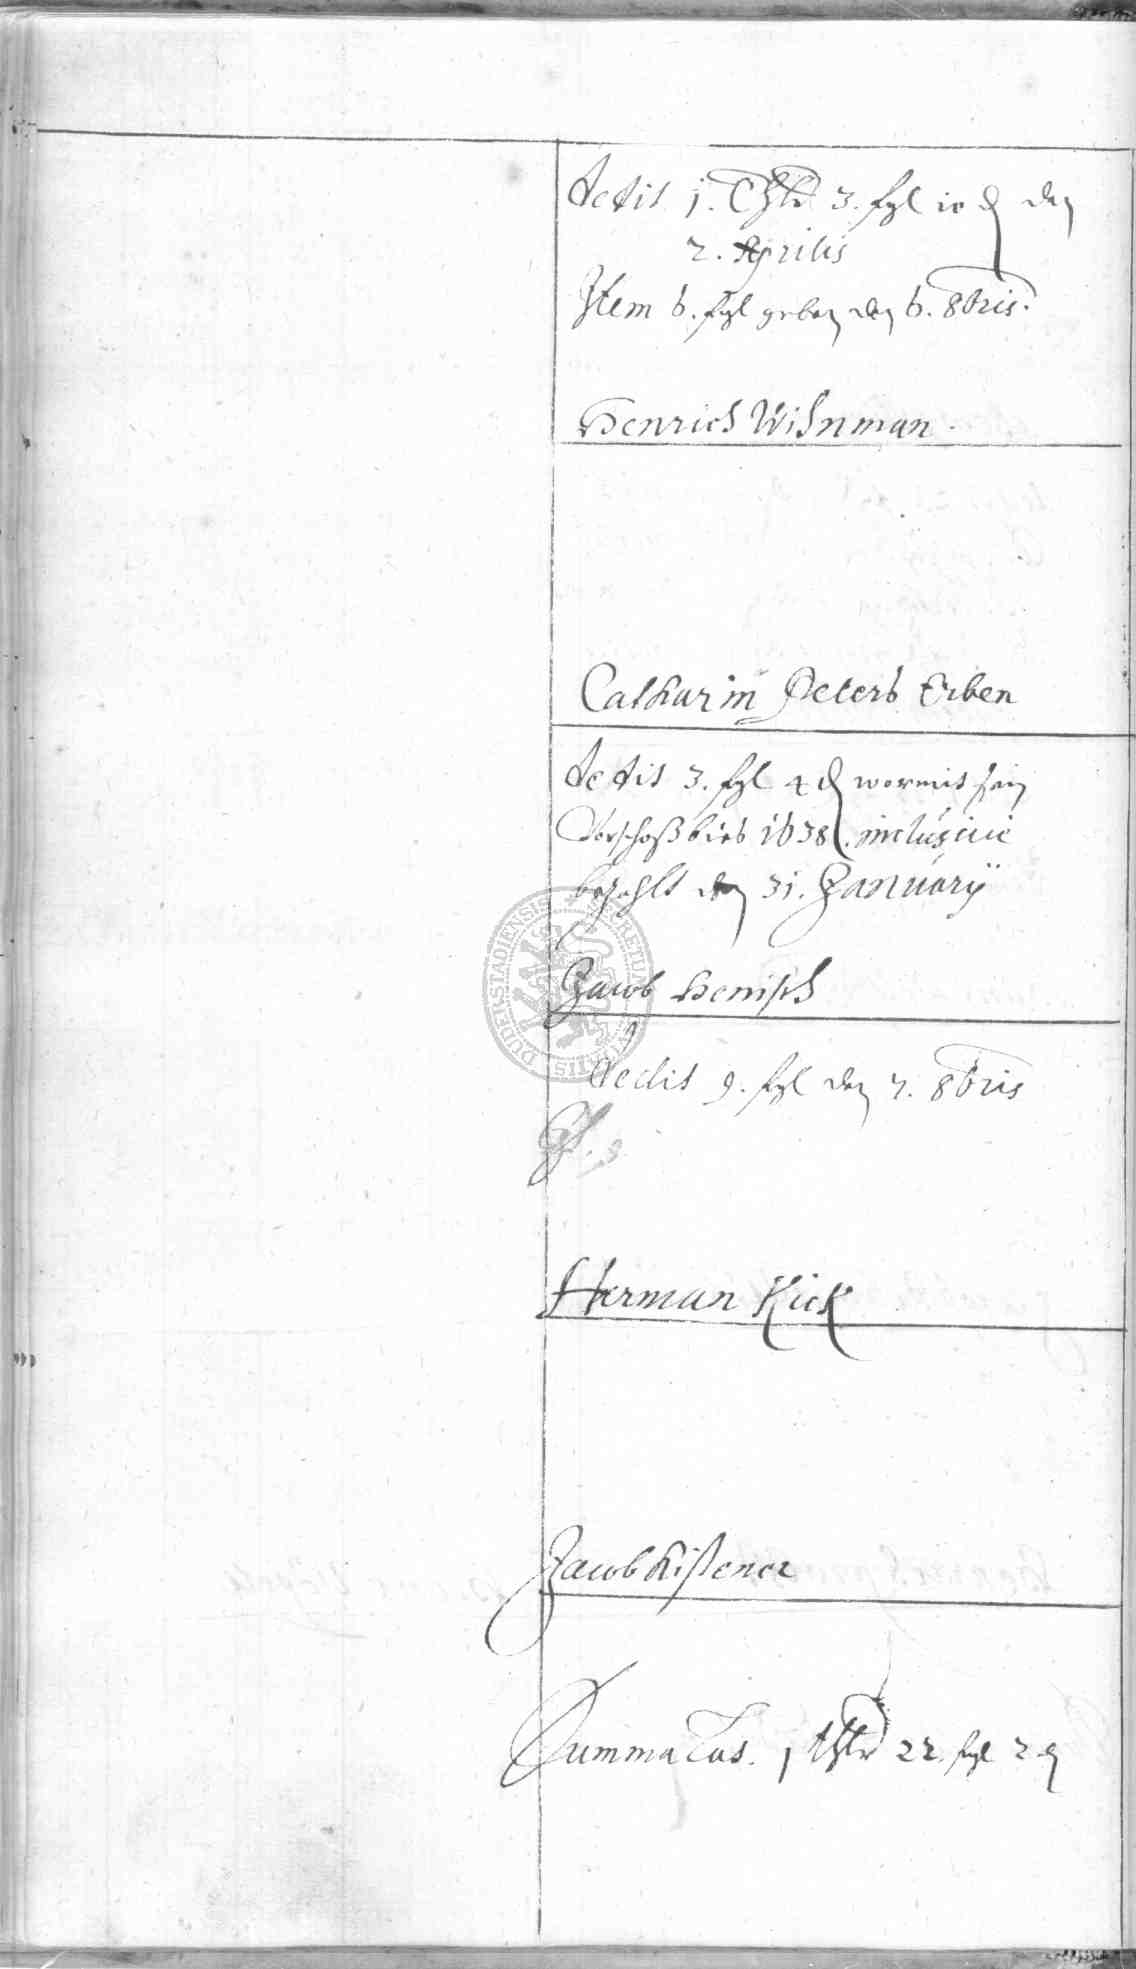 dedit 1. Thlr 3. ßgl 10 ₰ den
2. Aprilis
Item 6. ßgl geben den 6. 8bris.
Henrich Wihnman
Catharin Peters Erben
dedit 3. ßgl 4 ₰ wormit sein
Vorschoß biß 1638. inclusiue
bezahlt den 31. January
Jacob Henisch
dedit 9. ßgl den 7. 8bris
Herman Kick
Jacob Kistener
Summa Las. 1 thlr 22. ßgl 2 ₰
DUDERSTADIENSIS SECRETUM CIVITATIS